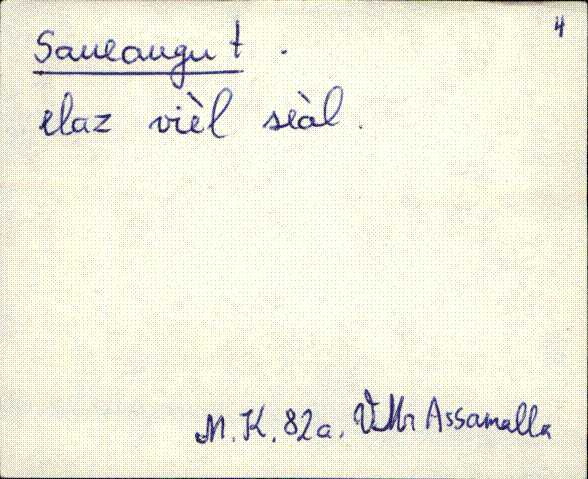 4
Saueaugu t.
elaz vièl seàl.
M. K. 82a. VMr Assamalla